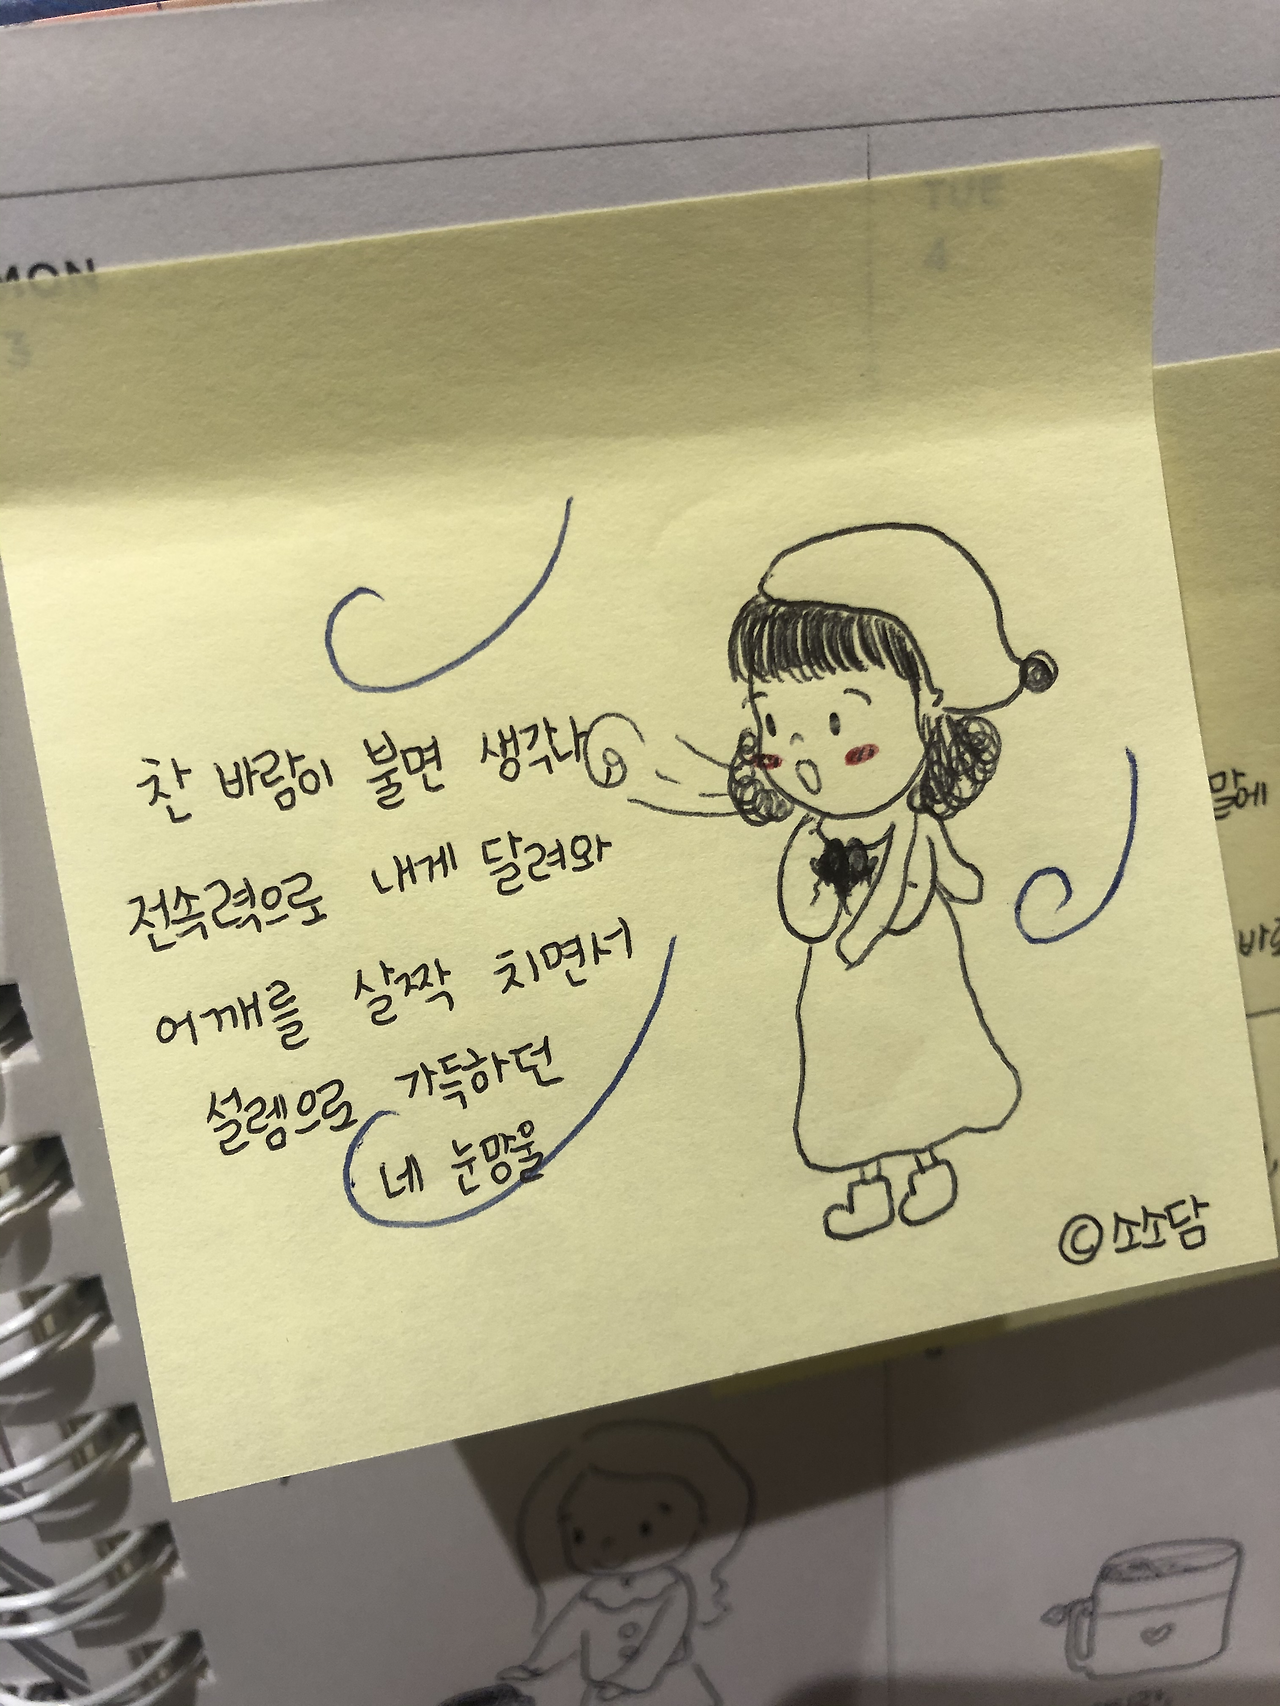 MON
3
TUE
4
찬 바람이 불면 생각나
전속력으로 내게 달려와
어깨를 살짝 치면서
설렘으로 가득하던
네 눈망울
©소소담
말에